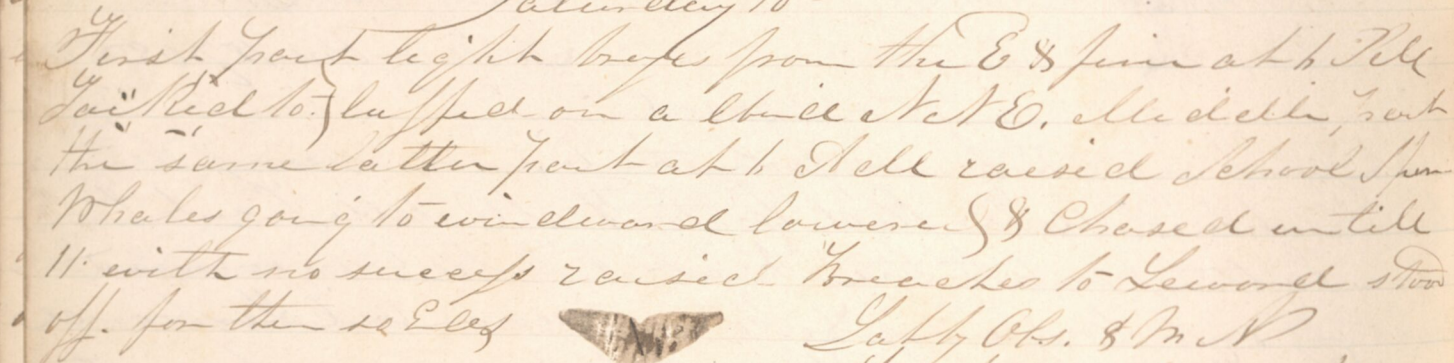 Saturday 10
First part light brezes from the E & fine at 6 P M
Tacked to & luffed on a wind N N E. Middle part
the same latter part at 6 A M raised School Sperm
Whales going to windward lowered & Chased untill
11 with no success raised Breaches to Leward stood
off for them
Lat by Obs. & M N